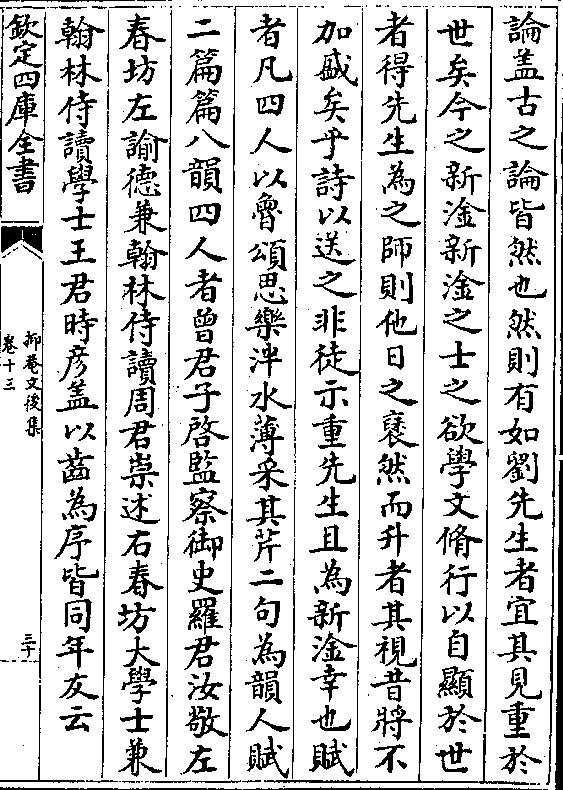 論蓋古之論皆然也然則有如劉先生者宜其見重於
世矣今之新淦新淦之士之欲學文脩行以自顯於世
者得先生為之師則他日之裒然而升者其視昔將不
加盛矣乎詩以送之非徒示重先生且為新淦幸也賦
者凡四人以魯頌思樂泮水薄采其芹二句為韻人賦
二篇篇八韻四人者曾君子啓監察御史羅君汝敬左
春坊左諭德兼翰林侍讀周君崇述右春坊大學士兼
翰林侍讀學士王君時彥蓋以齒為序皆同年友云
欽定四庫全書
抑菴文後集
卷十三
三十